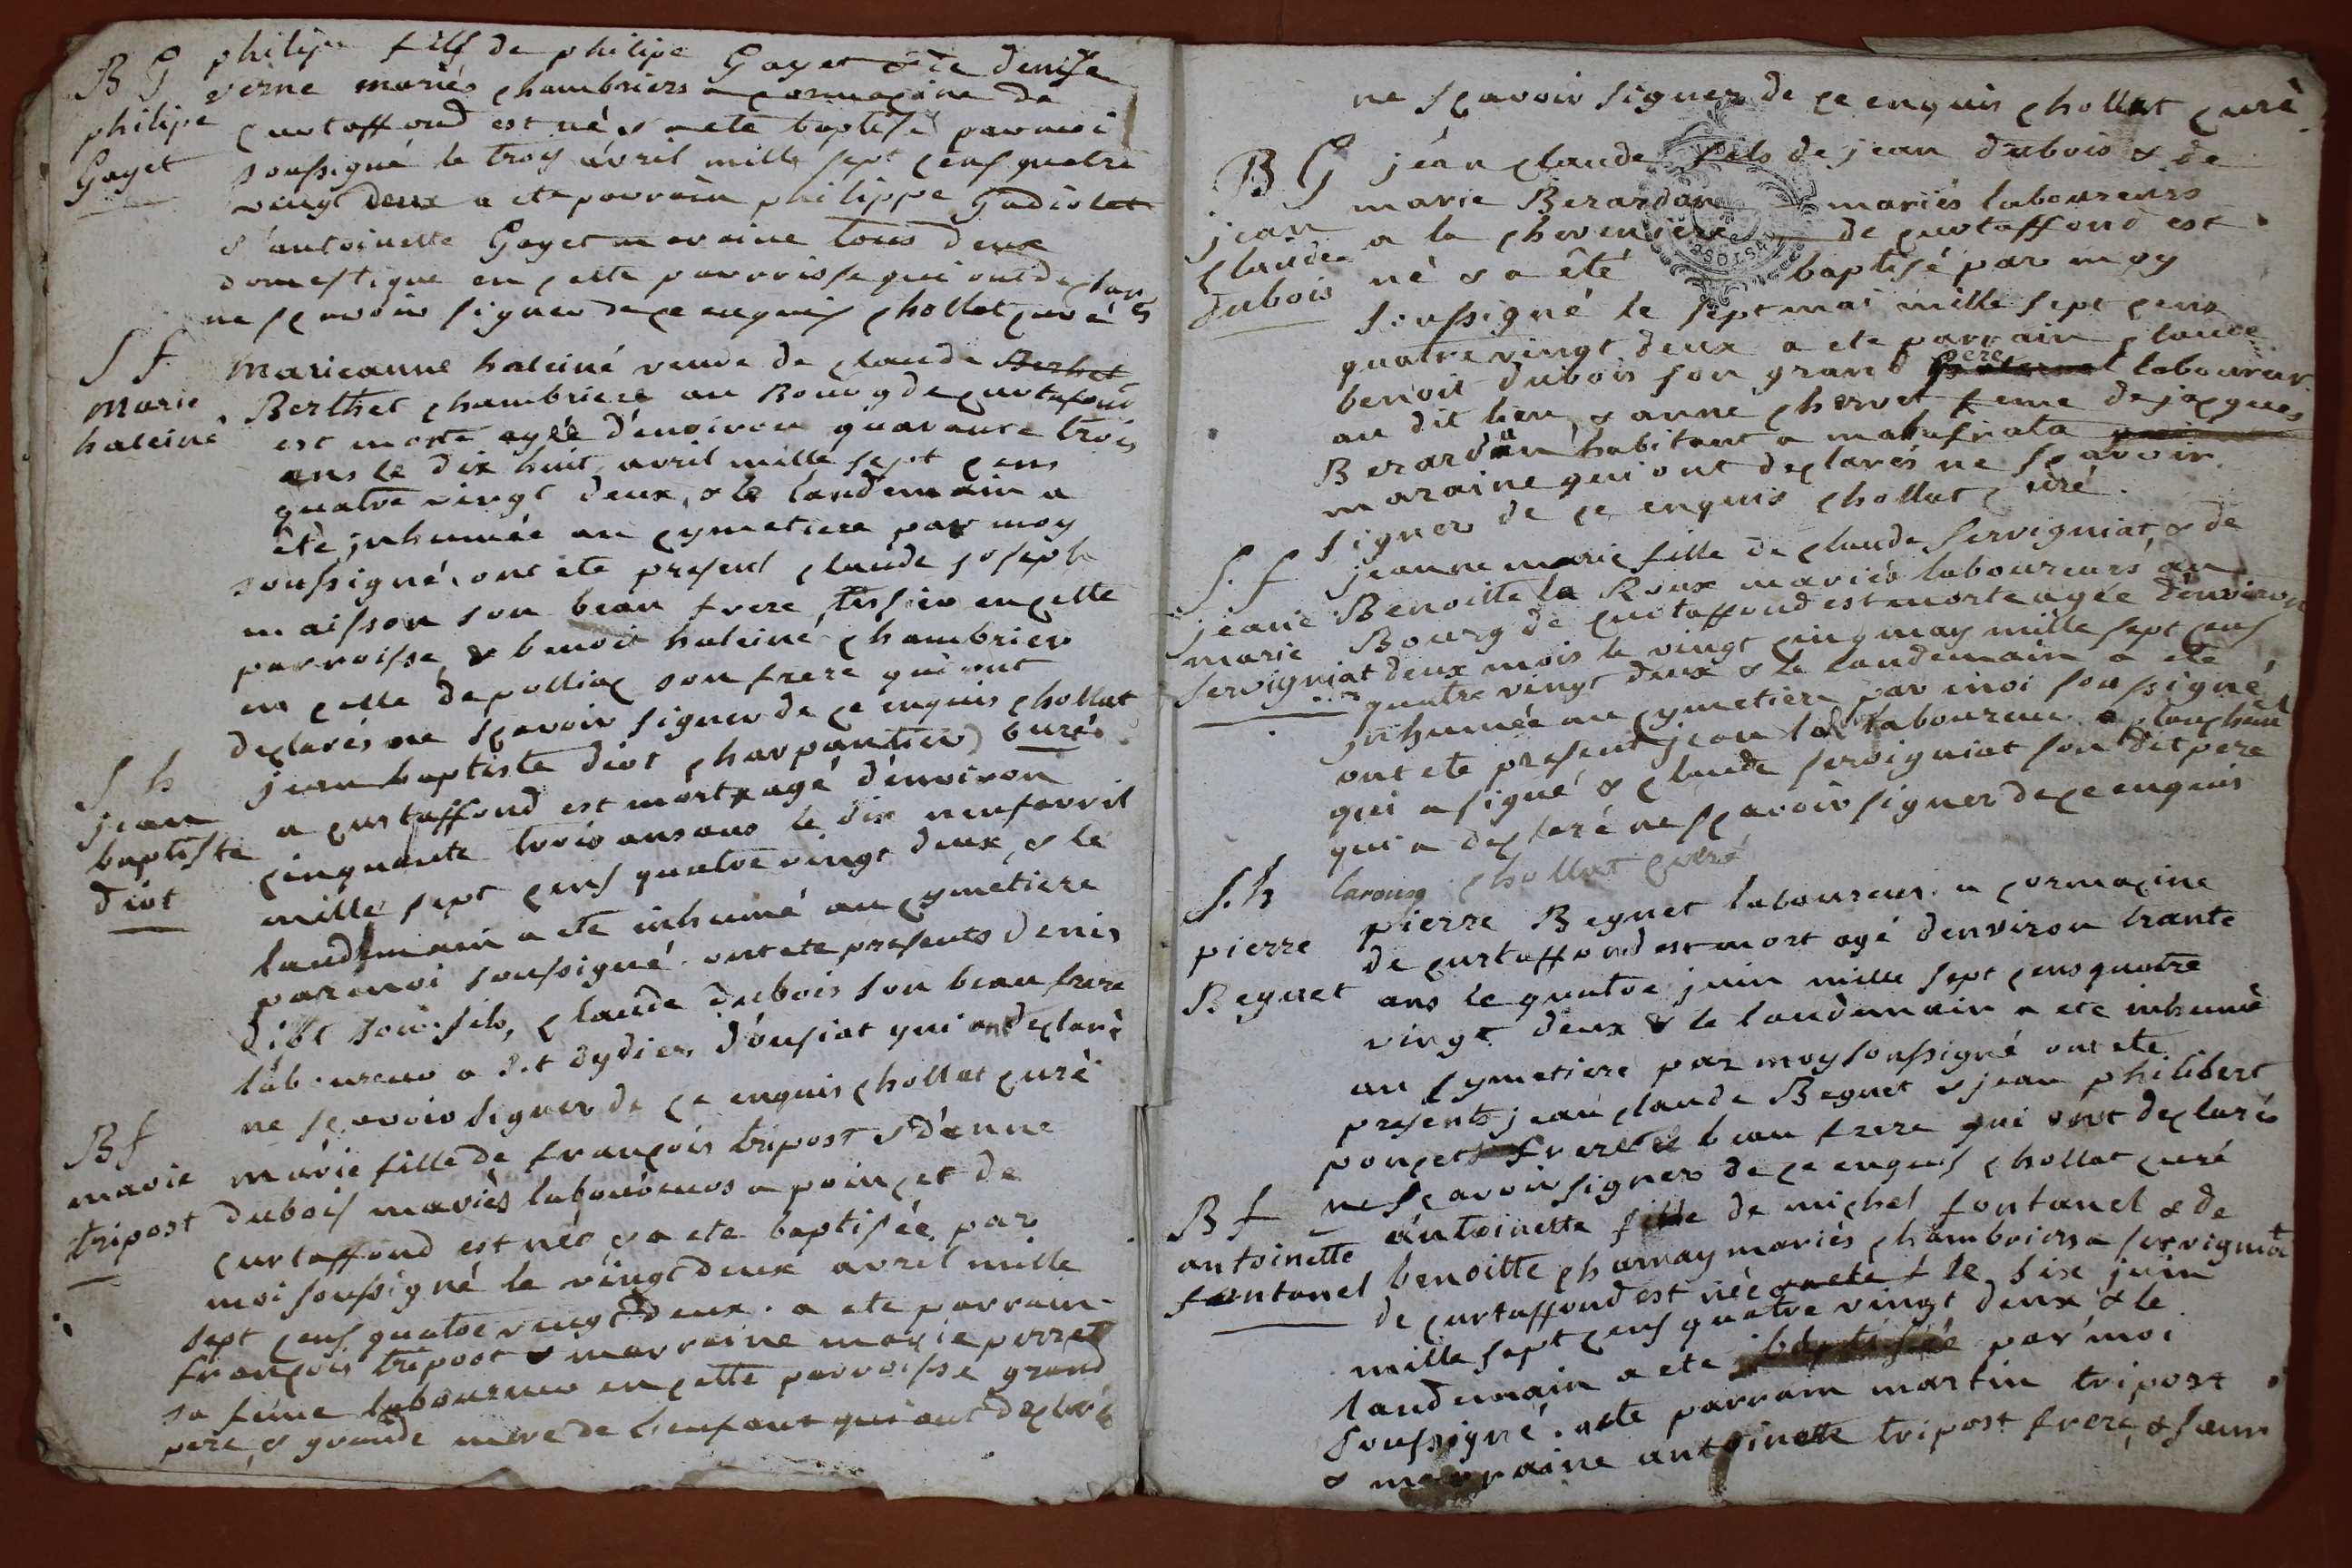 B G
philipe
Gayet
philipe fils de philipe Gayet & de denise
verne mariés chambriers a cormacine de
curtaffond est né & a ete baptisé par moi
soussigné le troy avril mille sept cens quatre
vingt deux a ete parrain philippe Gadiolet
& antoinette Gayet maraine tous deux
domestique en cette parroisse qui ont declarés
ne scavoir signer de ce enquis chollat curé
S f
Marie
haleiné
Marieanne haleiné veuve de claude Berhet
Berthet chambriere au Bourg de curtafond
est morte agée d'environ quarante trois
ans le dix huit avril mille sept cens
quatre vingt deux, & le landemain a
été inhumée au cymetiere par moy
soussigné, ont ete present claude joseph
maisson son beau frere tissier en cette
parroisse & benoit haleiné chambrier
en celle de polliac son frere qui ont
declarés ne scavoir signer de ce enquis chollat
curé
S h
jean
baptiste
diot
jean baptiste diot charpantier
a curtaffond est mort agé d'environ
cinquante trois ans ans le dix neuf avril
mille sept cens quatre vingt deux, & le
landemain a ete inhumé au cymetiere
par moi soussigné. ont ete presents denis
diot son fils, claude dubois son beau frere
laboureur a st dydier d'oussiat qui ont declaré
ne scavoir signer de ce enquis chollat curé
B f
marie
tripost
marie fille de françois tripost & d'anne
dubois mariés laboureurs a poincet de
curtaffond est née & a ete baptisée par
moi soussigné le vingt deux avril mille
sept cens quatre vingt deux. a ete parrain
françois tripost & marraine marie perret
sa feme laboureur en cette parroisse grand
pere, & grande mere de l'enfant qui ont declarés
ne scavoir signer de ce enquis chollat curé
B G
jean
claude
dubois
jean claude fils de jean dubois & de
marie Berardan mariés laboureurs
a la cheveniere de curtaffond est
né & a êté baptisé par moy
soussigné le sept mai mille sept cens
quatre vingt deux a ete parrain claude
benoit dubois son grand pere laboureur
au dit lieu, & anne chervet feme de jacques
Berardan habitant a malafreta
maraine qui ont declarés ne scavoir
signer de ce enquis chollat curé.
S. f
jeane
marie
servigniat
jeanne marie fille de claude servigniat, & de
Benoitte la Roux mariés laboureurs au
Bourg de curtaffond est morte agée d'environ
deux mois le vingt cinq may mille sept cens
quatre vingt deux & le landemain a ete
inhumée au cymetiere par moi soussigné,
ont ete present jean laboureur
qui a signé & claude servigniat son dit pere
qui a declaré ne scavoir signer de ce enquis
laroux chollat curé
S. h
pierre
Beguet
pierre Beguet laboureur a cormacine
de curtaffond est mort agé d'environ trante
ans le quatre juin mille sept cens quatre
vingt deux & le landemain a ete inhumé
au symetiere par moy soussigné ont ete
presents jean claude Beguet & jean philibert
poncet frere & beau frere qui ont declarés
ne scavoir signer de ce enquis chollat curé
B f
antoinette
fontanel
antoinette fille de michel fontanel & de
benoitte charnay mariés chambriers a servignat
de curtaffond est née & a ete le six juin
mille sept cens quatre vingt deux & le
landemain a ete baptisée par moi
soussigné. a ete parrain martin tripost
& marraine antoinette tripost frere, & sœur